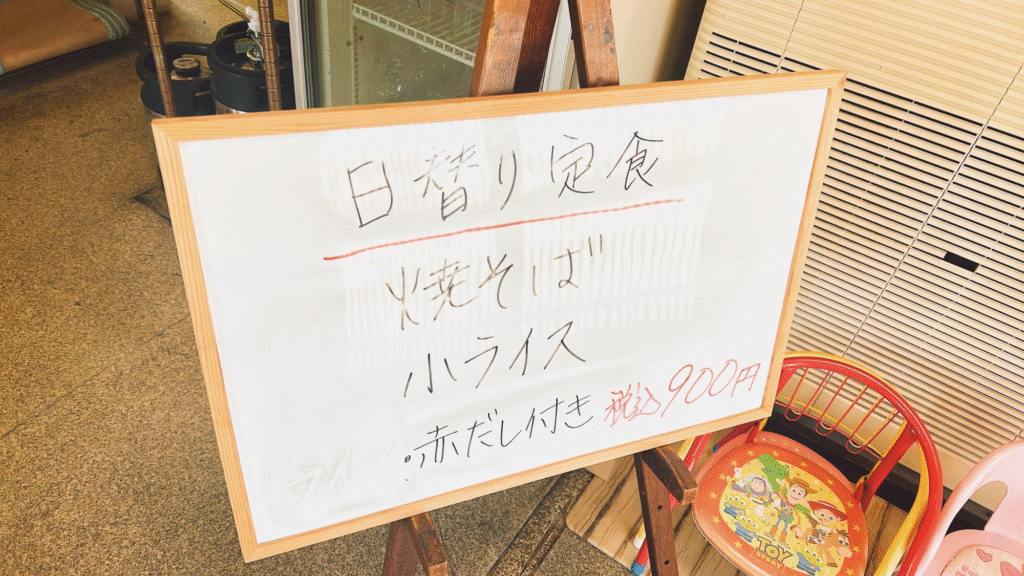 日替り定食
焼そば
小ライス
赤だし付き 税込900円
TOY